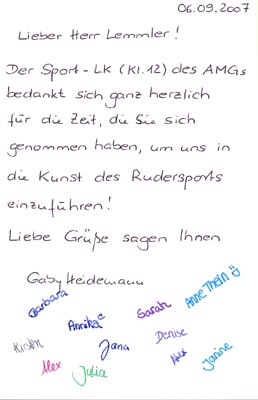 06.09.2007
Lieber Herr Lemmler!
Der Sport-LK (Kl.12) des AMGs
bedankt sich ganz herzlich
für die Zeit, die Sie sich
genommen haben, um uns in
die Kunst des Rudersports
einzuführen!
Liebe Grüße sagen Ihnen
Gaby Heidemann
Barbara
Annika
Sarah
Anne Thein
Kirstin
Jana
Denise
Alex
Janine
Alex
Julia